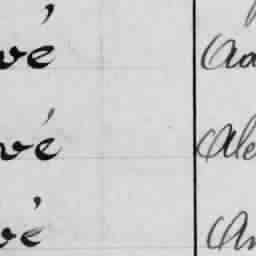 vé Aa
vé Ale
vé An